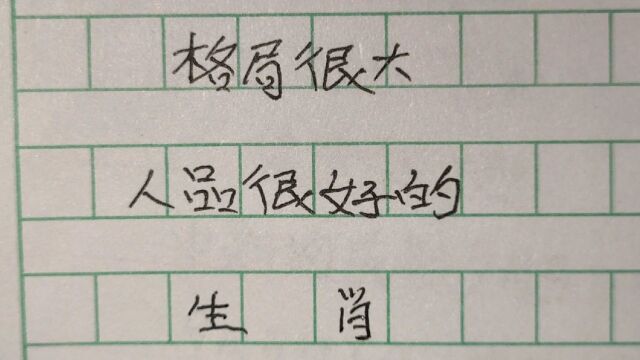 格局很大
人品很好的
生 肖